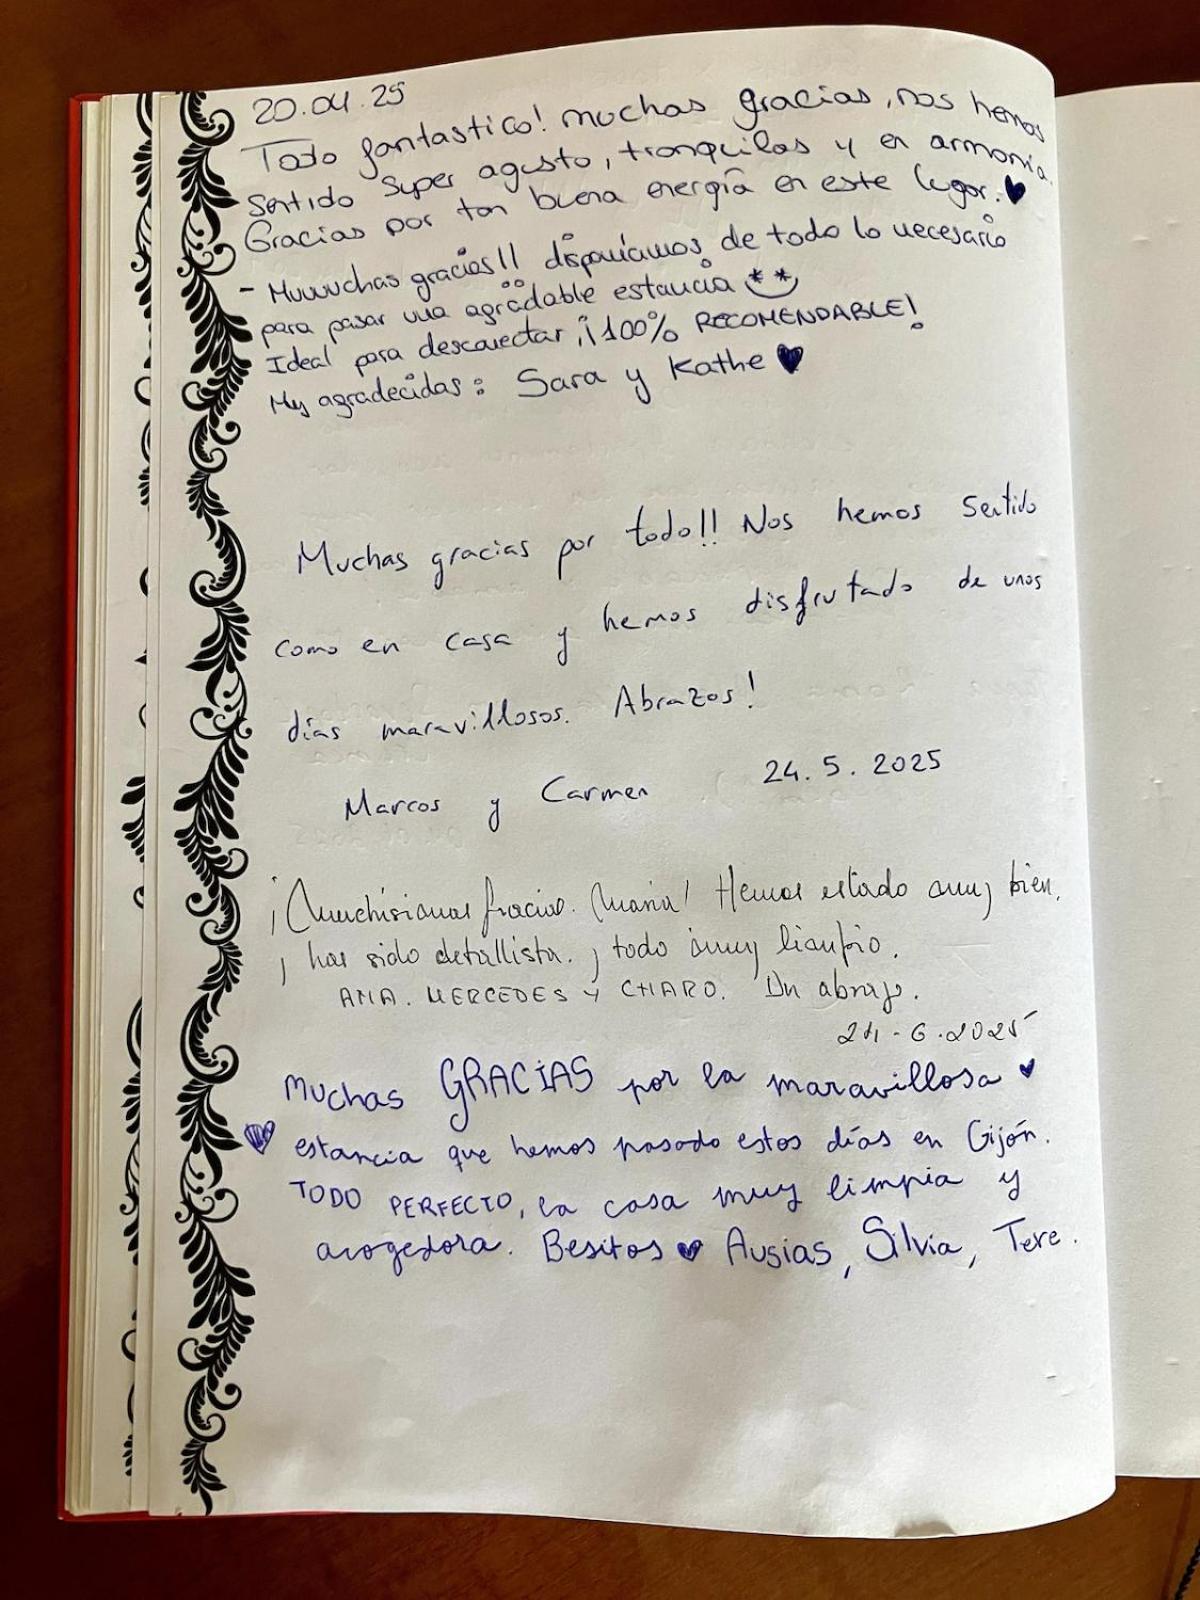 20.04.25
Todo fantastico! muchas gracias, nos hemos
sentido super agusto, tranquilas y en armonía.
Gracias por tan buena energía en este lugar. ♥
- Muuuchas gracias!! disponíamos de todo lo necesario
para pasar una agradable estancia
Ideal para desconectar, ¡¡100% RECOMENDABLE!
Muy agradecidas: Sara y Kathe ♥
Muchas gracias por todo!! Nos hemos sentido
como en casa y hemos disfrutado de unos
días maravillosos. Abrazos!
Marcos y Carmen 24.5.2025
¡Muchísimas gracias. María! Hemos estado muy bien,
, has sido detallista. y todo muy limpio.
ANA. MERCEDES Y CHARO. Un abrazo.
24-6.2025
Muchas GRACIAS por la maravillosa ♥
♥ estancia que hemos pasado estos días en Gijón.
TODO PERFECTO, la casa muy limpia y
acogedora. Besitos ♥ Ausias, Silvia, Tere.